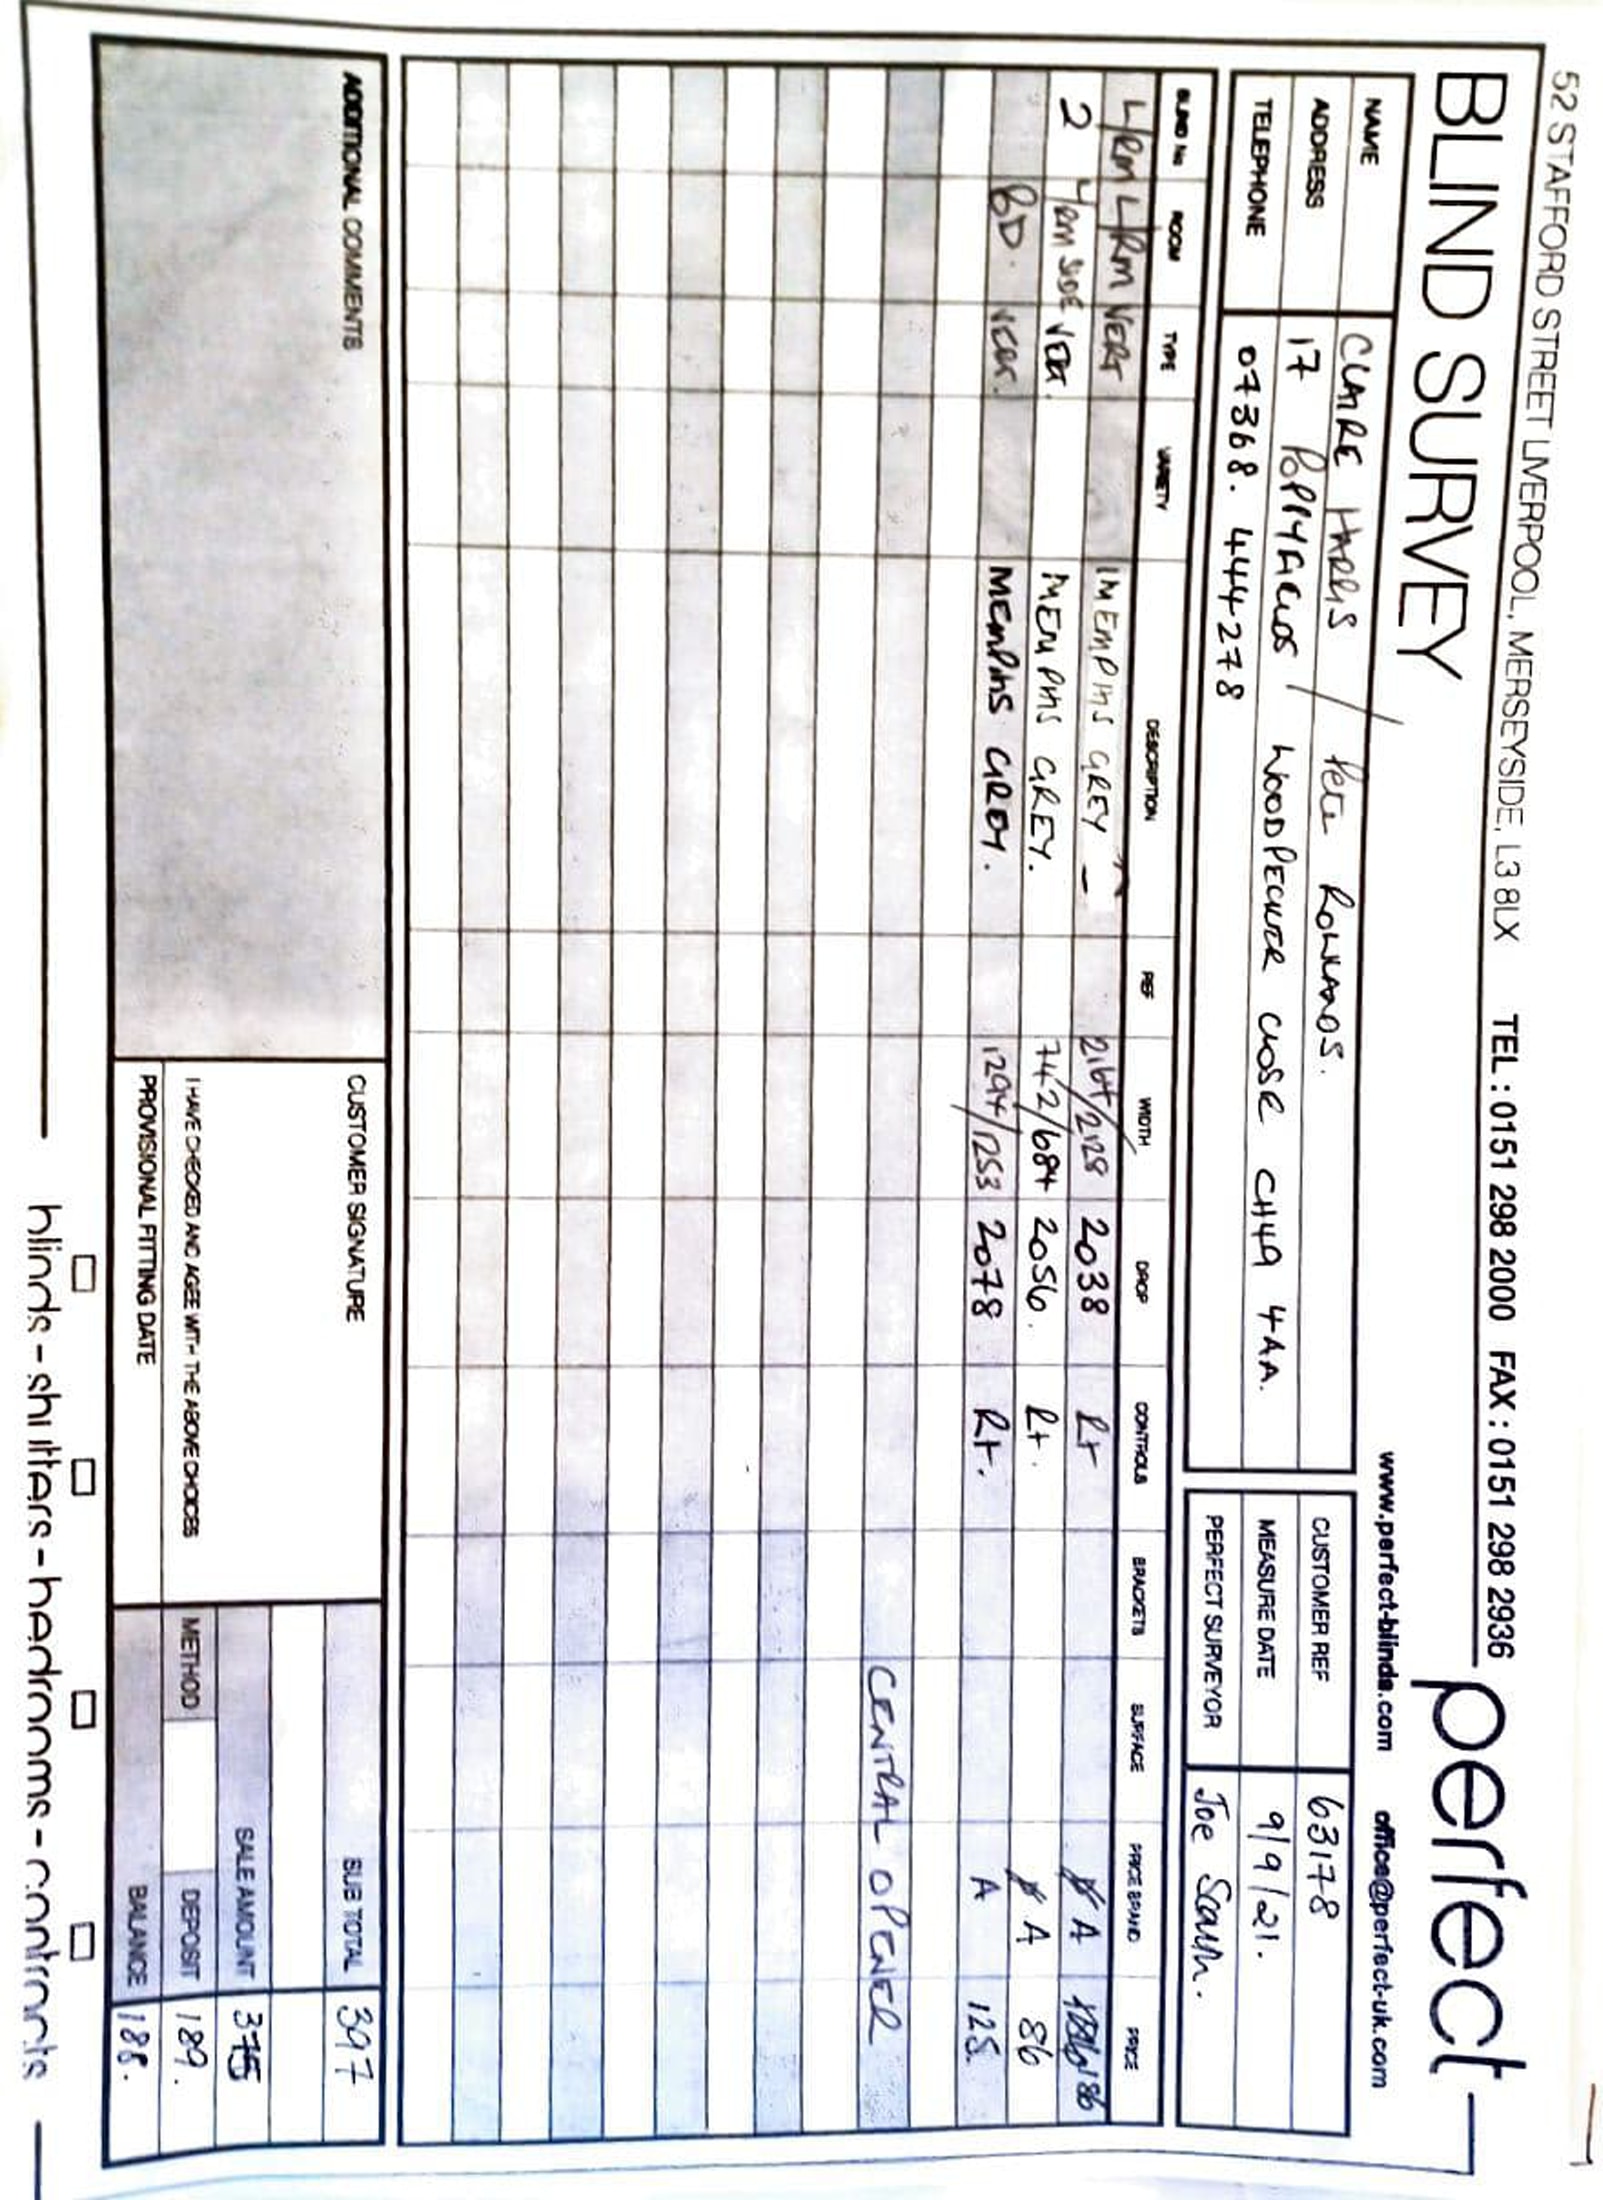 52 STAFFORD STREET LIVERPOOL, MERSEYSIDE, L3 8LX TEL : 0151 298 2000 FAX : 0151 298 2936
BLIND SURVEY
perfect
www.perfect-blinds.com office@perfect-uk.com
NAME CLAIRE HARRIS / Pete ROWLANDS.
ADDRESS 17 POPPYFIELDS / WOODPECKER CLOSE CH49 4AA.
TELEPHONE 07368. 444278
CUSTOMER REF 63178
MEASURE DATE 9/9/21.
PERFECT SURVEYOR Joe
BLIND No ROOM TYPE VARIETY DESCRIPTION REF WIDTH DROP CONTROLS BRACKETS SURFACE PRICE BRAND PRICE
L/RM L/RM VERT MEMPHIS GREY 2164/2128 2038 Rt A 186
2 L/RM SIDE VERT. MEMPHIS GREY. 742/684 2056. Rt. A 86
BD. VERT. MEMPHIS GREY. 1294/1253 2078 Rt. A 125.
CENTRAL OPENER
ADDITIONAL COMMENTS
CUSTOMER SIGNATURE
I HAVE CHECKED AND AGREE WITH THE ABOVE CHOICES
PROVISIONAL FITTING DATE
SUB TOTAL 397
SALE AMOUNT 375
METHOD DEPOSIT 189.
BALANCE 188.
blinds - shutters - bedrooms - contracts